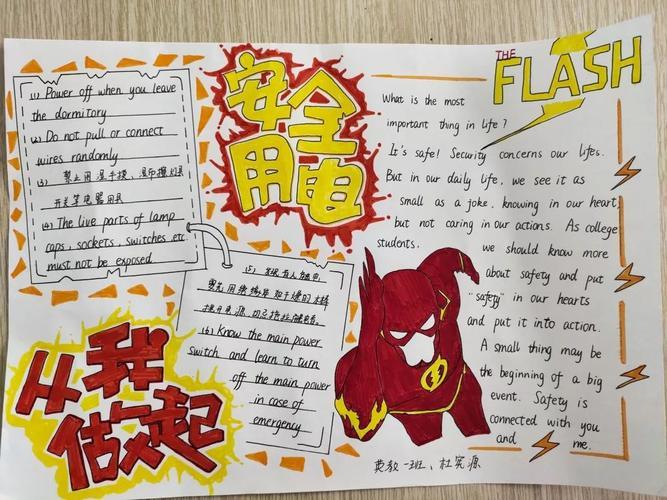 (1) Power off when you leave
the dormitory
(2) Do not pull or connect
wires randomly
(3) 禁止用湿手摸、湿布擦灯具
开关等电器用具
(4) The live parts of lamp
caps, sockets, switches etc
must not be exposed
安全
用电
THE
FLASH
What is the most
important thing in life?
It's safe! Security concerns our lifes.
But in our daily life, we see it as
small as a joke, knowing in our heart,
but not caring in our actions. As college
students. we should know more
about safety and put
"safety" in our hearts
and put it into action.
A small thing may be
the beginning of a big
event. Safety is
connected with you
and me.
(5) 发现有人触电,
要先用绝缘的干燥的木棒
(6) Know the main power
switch and learn to turn
off the main power
in case of
emergency
从我
做起
英教一班、杜宪源